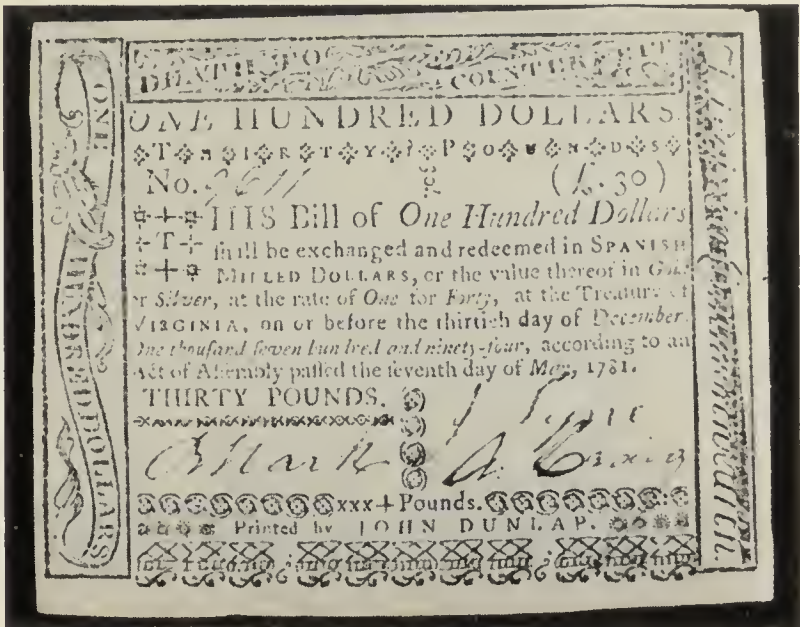 DEATH TO COUNTERFEIT
ONE HUNDRED DOLLARS.
THIRTY POUNDS
No. (£.30)
THIS Bill of One Hundred Dollars
ſhall be exchanged and redeemed in SPANISH
MILLED DOLLARS, or the value thereof in Gold
or Silver, at the rate of One for Forty, at the Treaſury of
VIRGINIA, on or before the thirtieh day of December,
One thouſand ſeven hundred and ninety-four, according to an
Act of Aſſembly paſſed the ſeventh day of May, 1781.
THIRTY POUNDS.
xxx+Pounds.
Printed by JOHN DUNLAP.
ONE HUNDRED DOLLARS